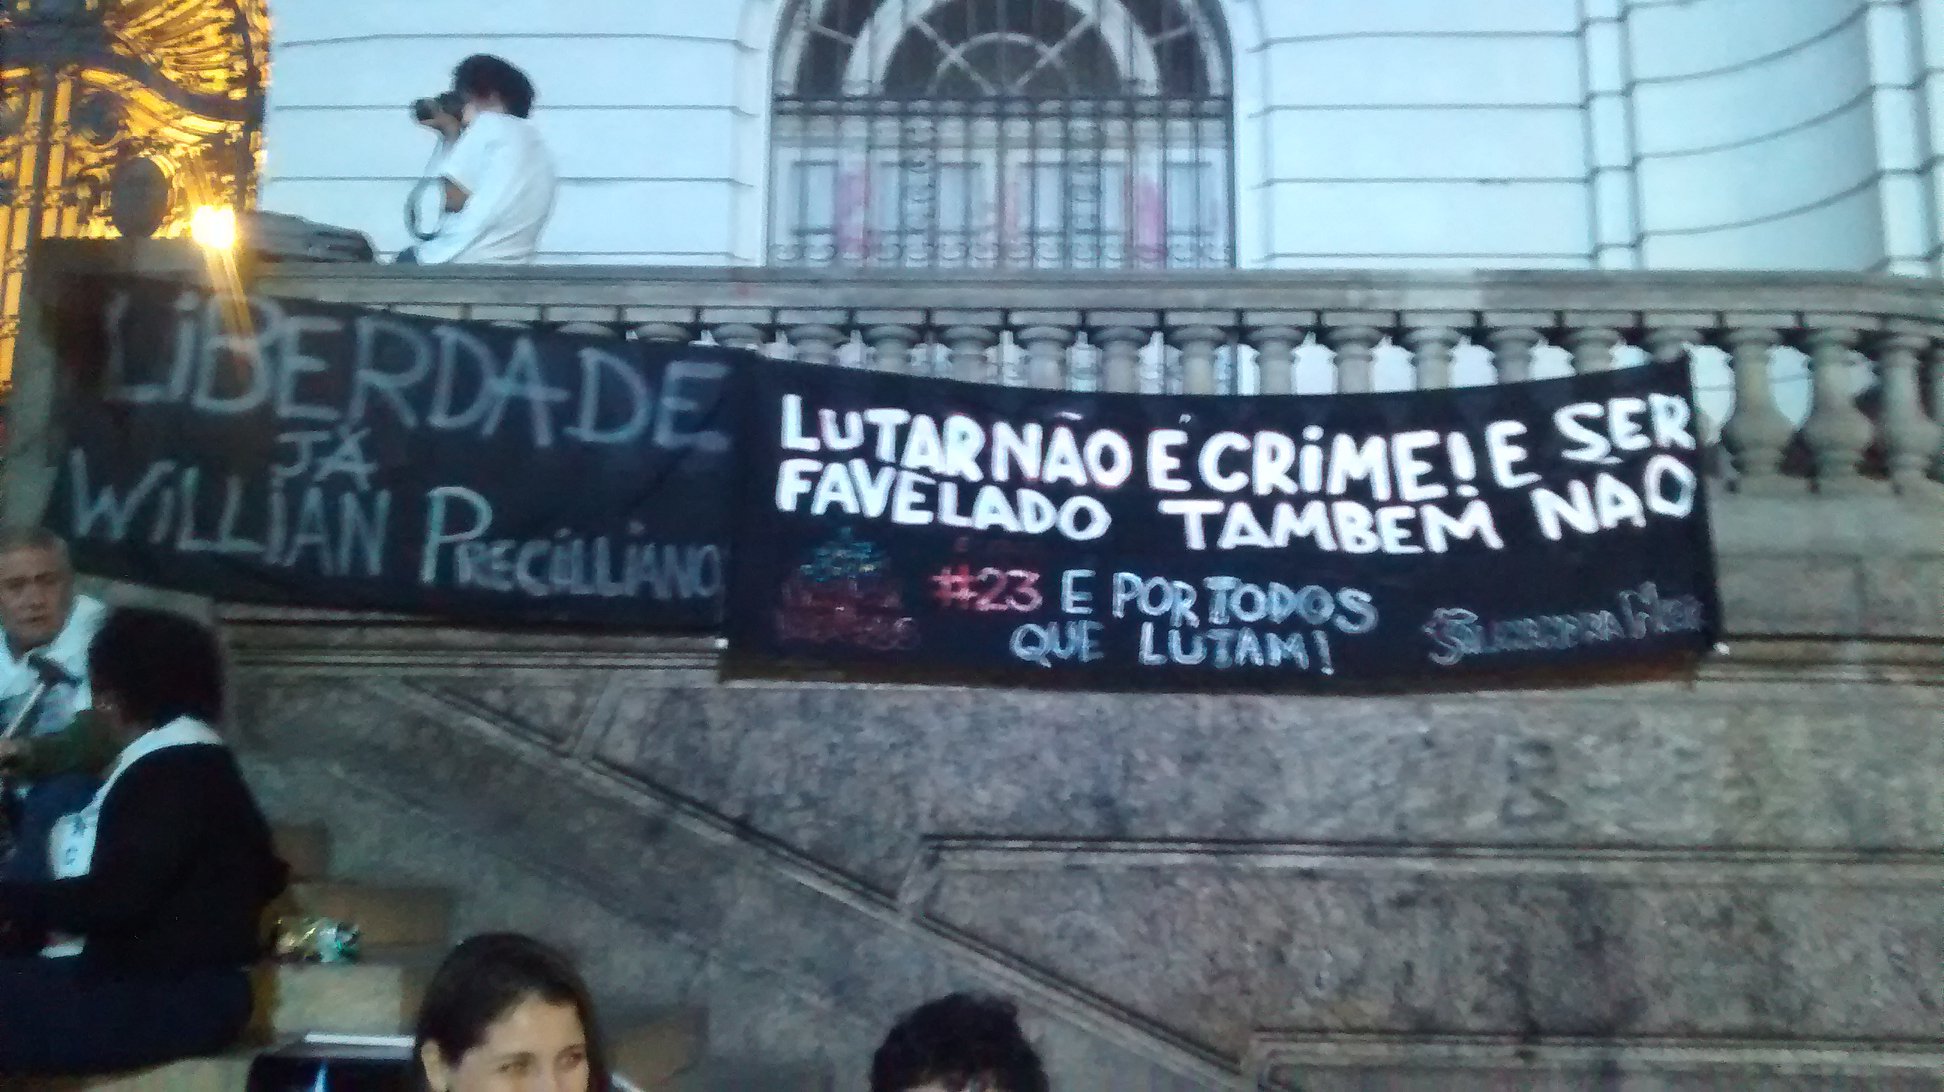 LIBERDADE
JÁ
WILLIAN PRECILLIANO
LUTAR NÃO É CRIME! E SER
FAVELADO TAMBEM NÃO
#23 E POR TODOS
QUE LUTAM!